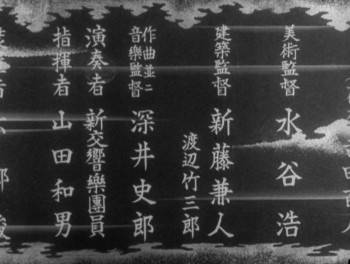 美術監督 水谷浩
建築監督 新藤兼人
渡辺竹三郎
作曲並ニ
音樂監督 深井史郎
演奏者 新交響樂團員
指揮者 山田和男